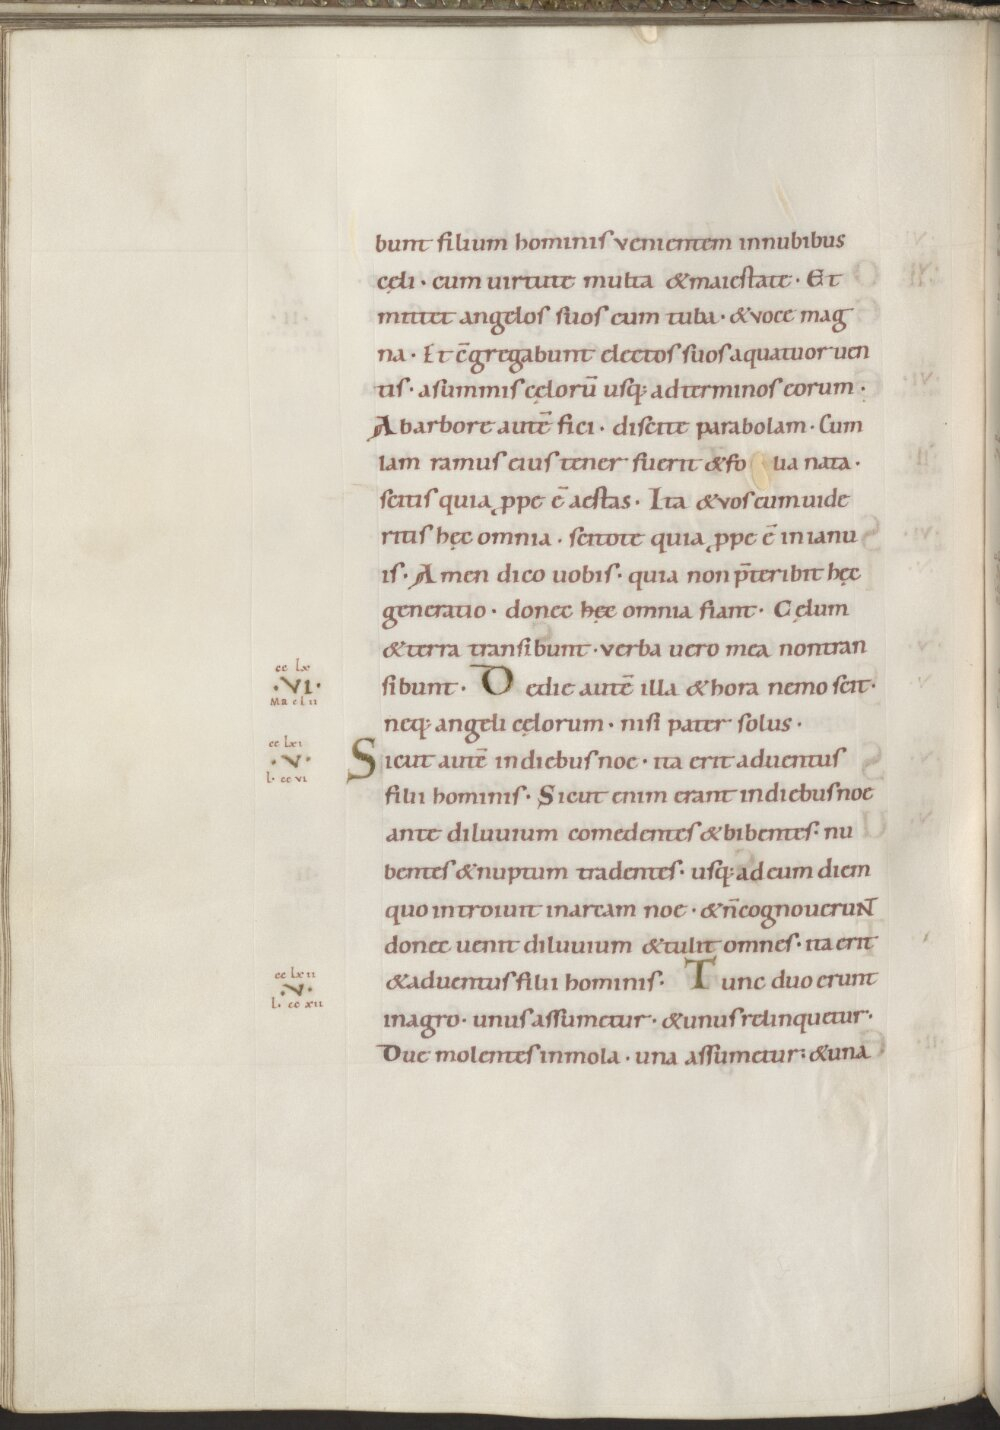 bunt filium hominis venientem innubibus
cęli · cum uirtute multa &maiestate · Et
mittet angelos suos cum tuba · &voce mag
na · Et c̄gregabunt electos suos aquatuor uen
tis · asummis cęlorū usq; adterminos eorum ·
Abarbore autē fici · discite parabolam · Cum
Iam ramus eius tener fuerit &fo lia nata ·
scitis quia ꝓpe ē aestas · Ita &vos cum uide
ritis hęc omnia · scitote quia ꝓpe ē in ianu
is · Amen dico uobis · quia non p̄teribit hęc
generatio · donec hęc omnia fiant · Cęlum
&terra transibunt · verba uero mea nontran
cc Lx
·VI·
Ma cl ii
sibunt · Dedie autē illa &hora nemo scit ·
neq; angeli cęlorum · nisi pater solus ·
cc Lxi
·V·
L· cc vi
Sicut autē indiebus noe · ita erit aduentus
filii hominis · Sicut enim erant indiebus noe
ante diluuium comedentes &bibentes · nu
bentes &nuptum tradentes · usq; ad eum diem
quo introiuit inarcam noe · &n̄cognouerunt
donec uenit diluuium &tulit omnes · ita erit
cc Lxii
·V·
L· cc xii
&aduentus filii hominis · Tunc duo erunt
inagro · unus assumetur · &unus relinquetur ·
Due molentes inmola · una assumetur : &una